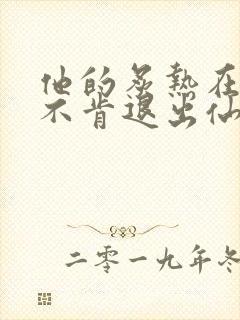 他的炙热在
不肯退出仙
二零一九年冬